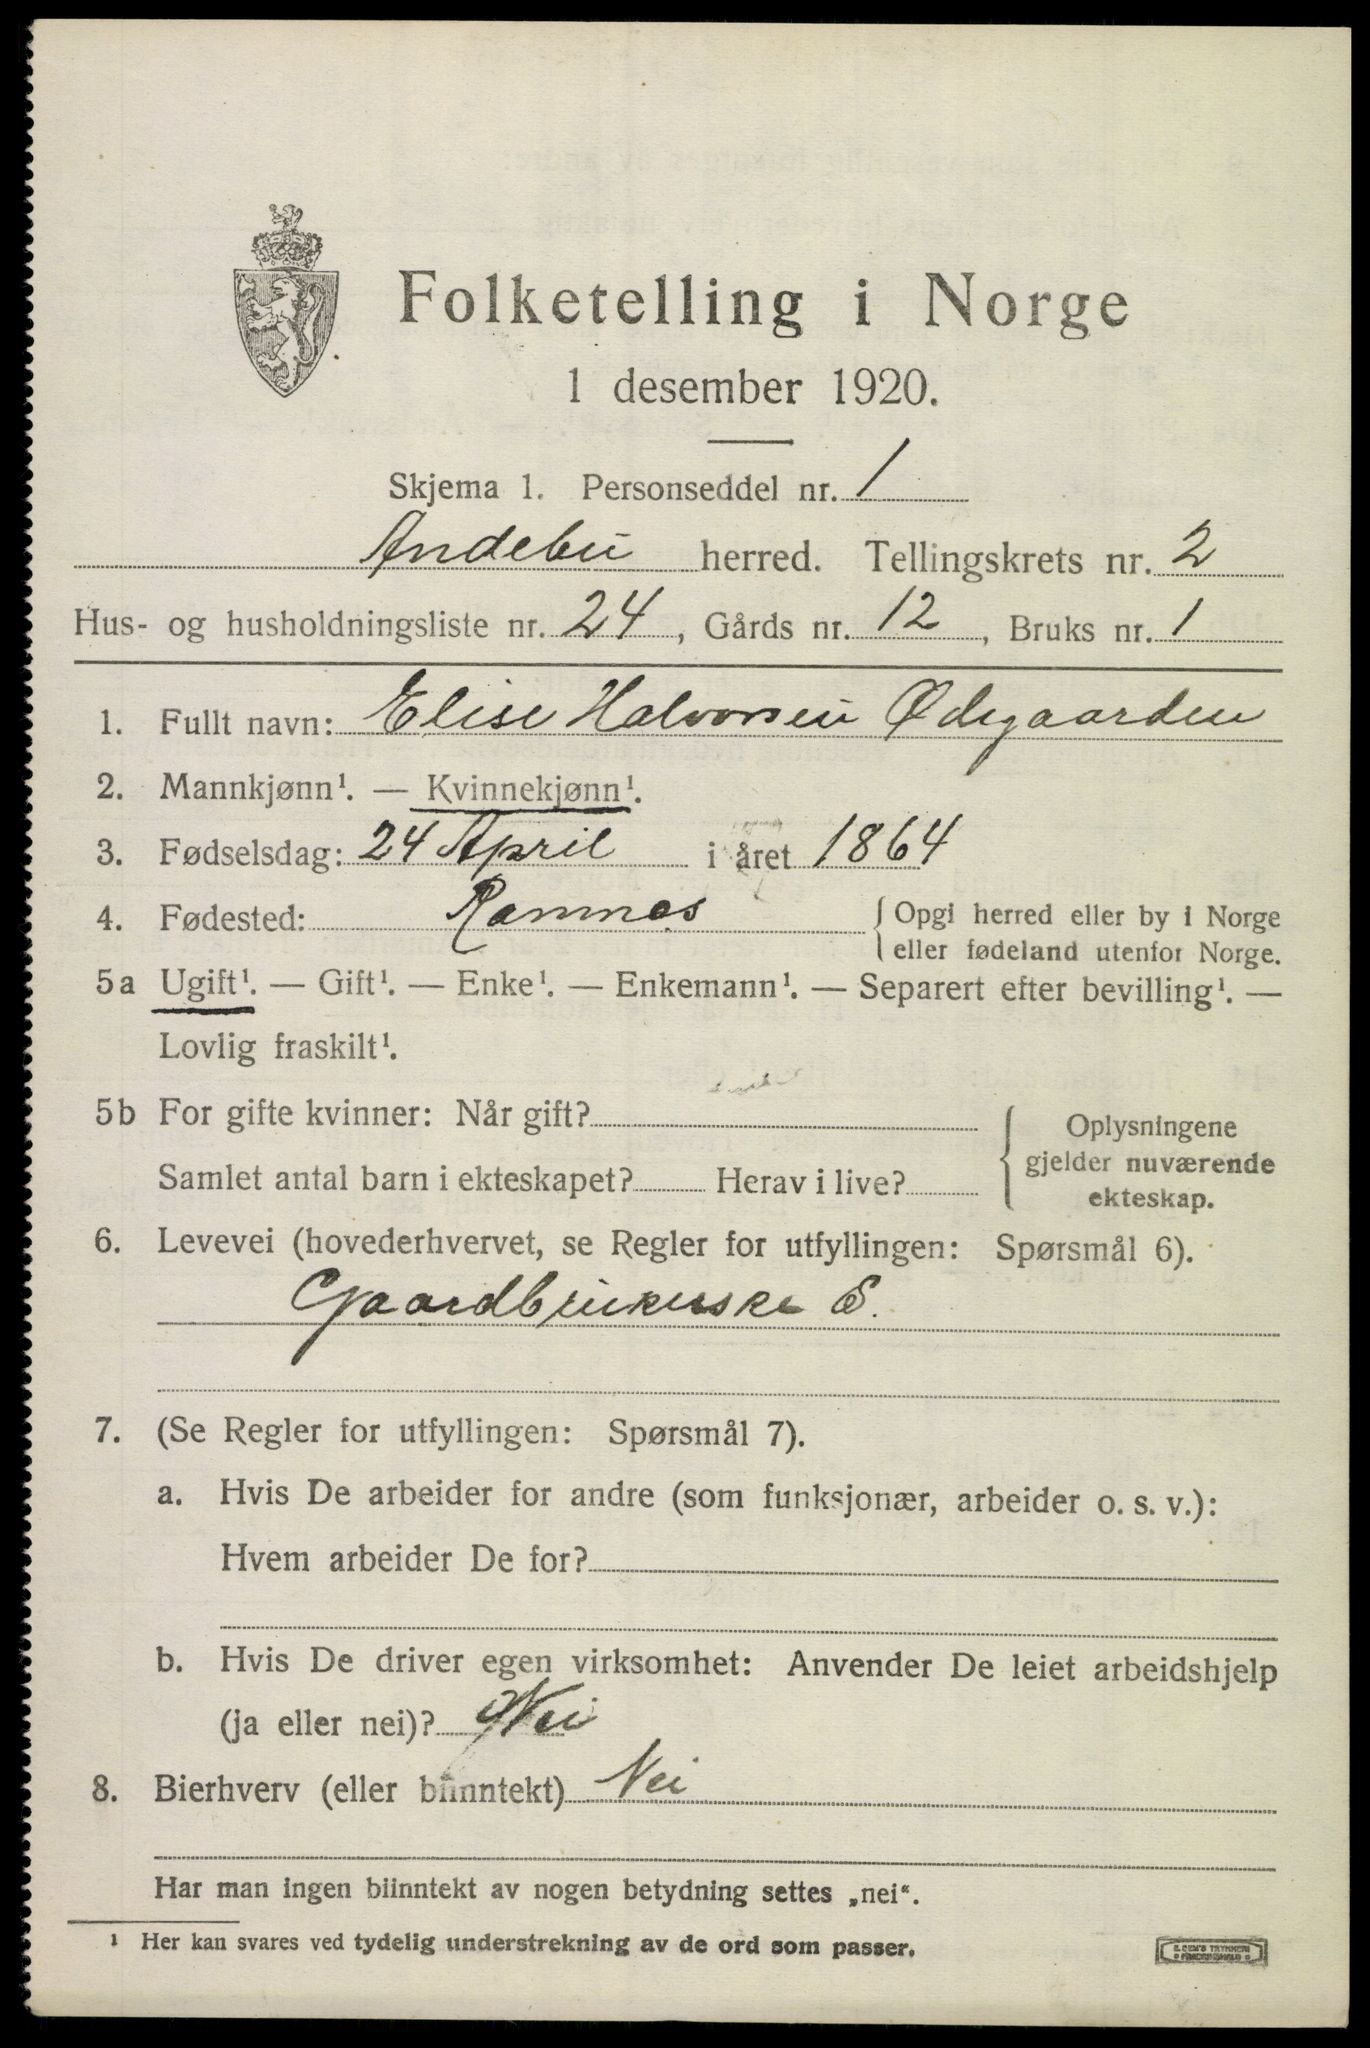 Folketelling i Norge
1 desember 1920.
Skjema 1. Personseddel nr. 1
Andebu herred. Tellingskrets nr. 2
Hus- og husholdningsliste nr. 24, Gårds nr. 12, Bruks nr. 1
1. Fullt navn: Elise Halvorsen Ødegaarden
2. Mannkjønn¹. — Kvinnekjønn¹.
3. Fødselsdag: 24 April i året 1864
4. Fødested: Ramnes { Opgi herred eller by i Norge
eller fødeland utenfor Norge.
5a Ugift¹. — Gift¹. — Enke¹. — Enkemann¹. — Separert efter bevilling¹. —
Lovlig fraskilt¹.
5b For gifte kvinner: Når gift?
Samlet antal barn i ekteskapet? Herav i live?
Oplysningene
gjelder nuværende
ekteskap.
6. Levevei (hovederhvervet, se Regler for utfyllingen: Spørsmål 6).
Gaardbrukerske E.
7. (Se Regler for utfyllingen: Spørsmål 7).
a. Hvis De arbeider for andre (som funksjonær, arbeider o. s. v.):
Hvem arbeider De for?
b. Hvis De driver egen virksomhet: Anvender De leiet arbeidshjelp
(ja eller nei)? Nei
8. Bierhverv (eller biinntekt) Nei
Har man ingen biinntekt av nogen betydning settes „nei“.
¹ Her kan svares ved tydelig understrekning av de ord som passer.